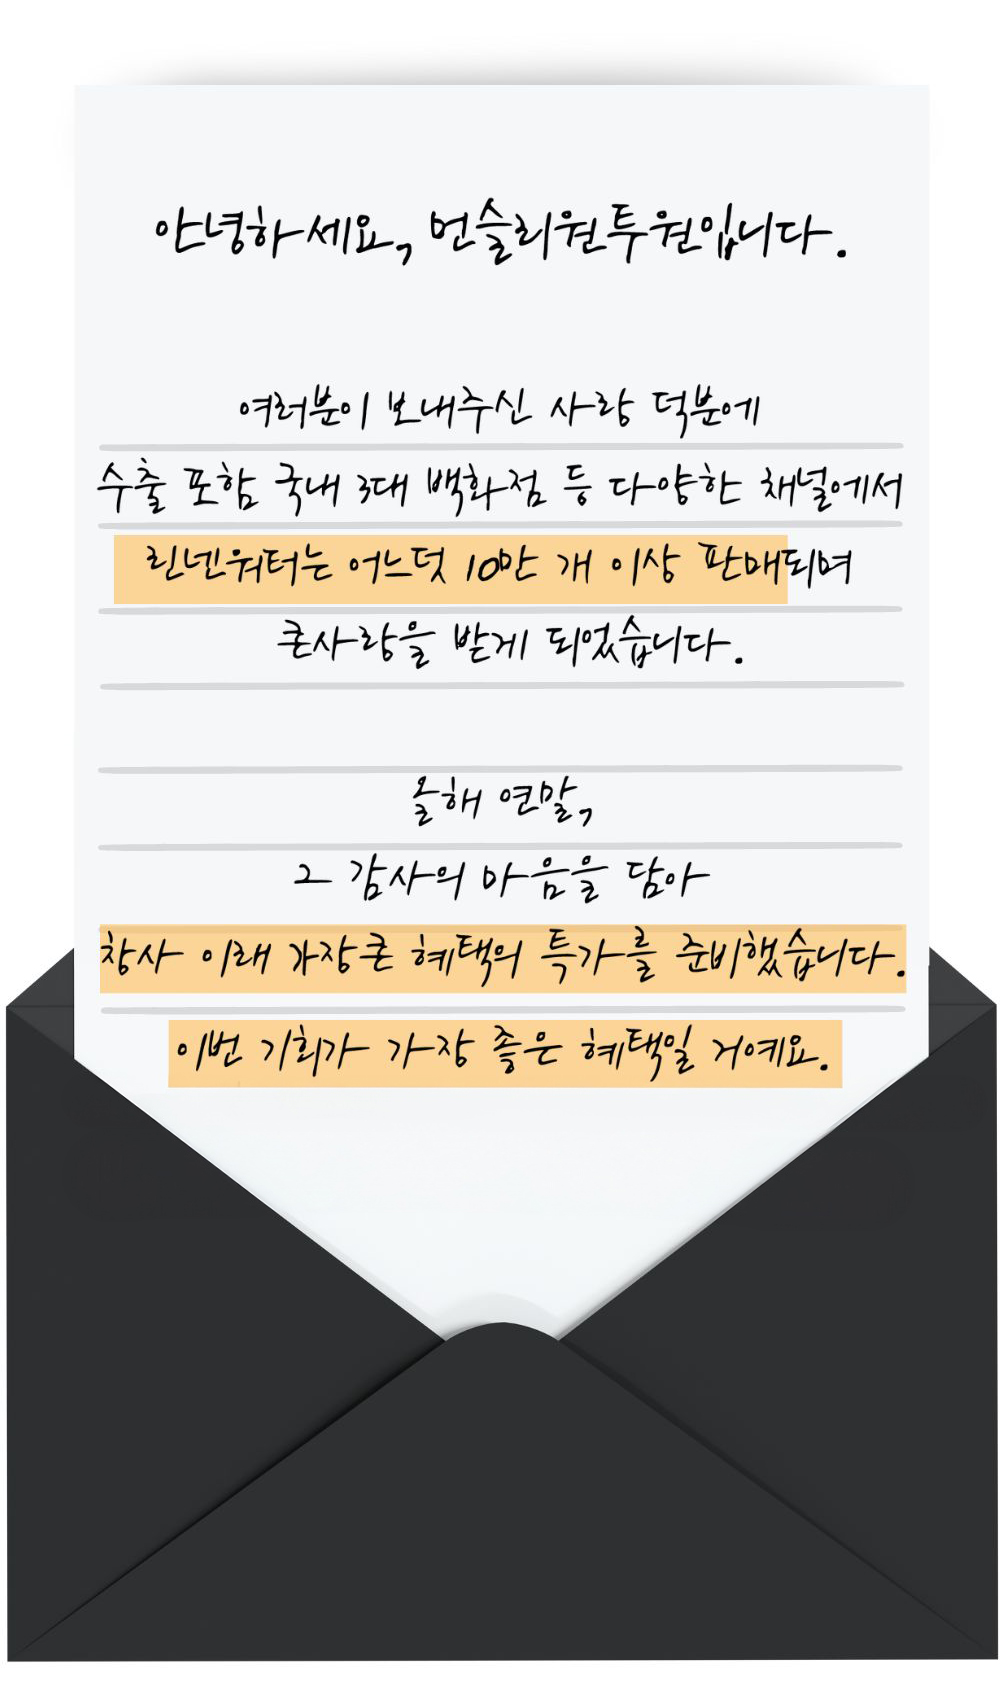 안녕하세요, 먼슬리원투원입니다.
여러분이 보내주신 사랑 덕분에
수출 포함 국내 3대 백화점 등 다양한 채널에서
린넨워터는 어느덧 10만 개 이상 판매되며
큰사랑을 받게 되었습니다.
올해 연말,
그 감사의 마음을 담아
창사 이래 가장큰 혜택의 특가를 준비했습니다.
이번 기회가 가장 좋은 혜택일 거예요.